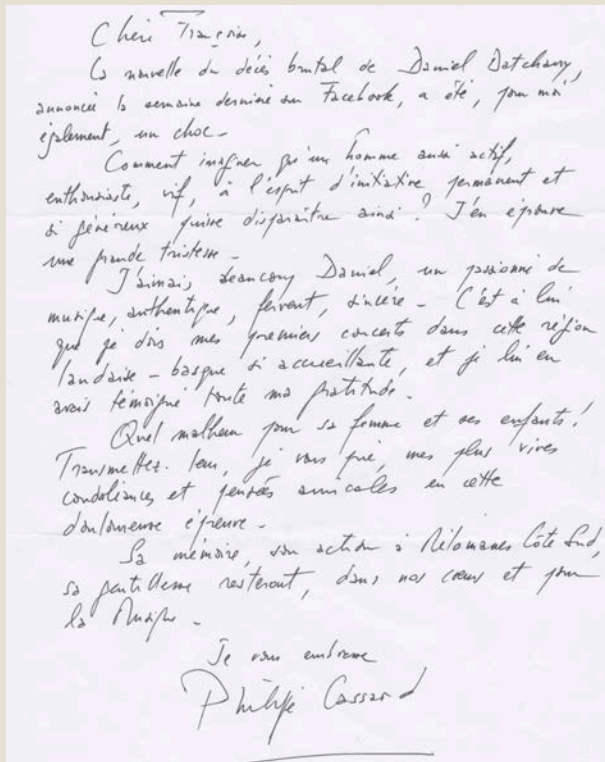 Chère Françoise,
La nouvelle du décès brutal de Daniel Datcharry,
annoncée la semaine dernière sur Facebook, a été, pour moi
également, un choc.
Comment imaginer qu'un homme aussi actif,
enthousiaste, vif, à l'esprit d'initiative permanent et
si généreux puisse disparaître ainsi ? J'en éprouve
une grande tristesse.
J'aimais beaucoup Daniel, un passionné de
musique, authentique, fervent, sincère. C'est à lui
que je dois mes premiers concerts dans cette région
landaise - basque si accueillante, et je lui en
avais témoigné toute ma gratitude.
Quel malheur pour sa femme et ses enfants !
Transmettez-leur, je vous prie, mes plus vives
condoléances et pensées amicales en cette
douloureuse épreuve.
Sa mémoire, son action à Mélomanes Côte Sud,
sa gentillesse resteront, dans nos cœurs et pour
la Musique.
Je vous embrasse
Philippe Cassard